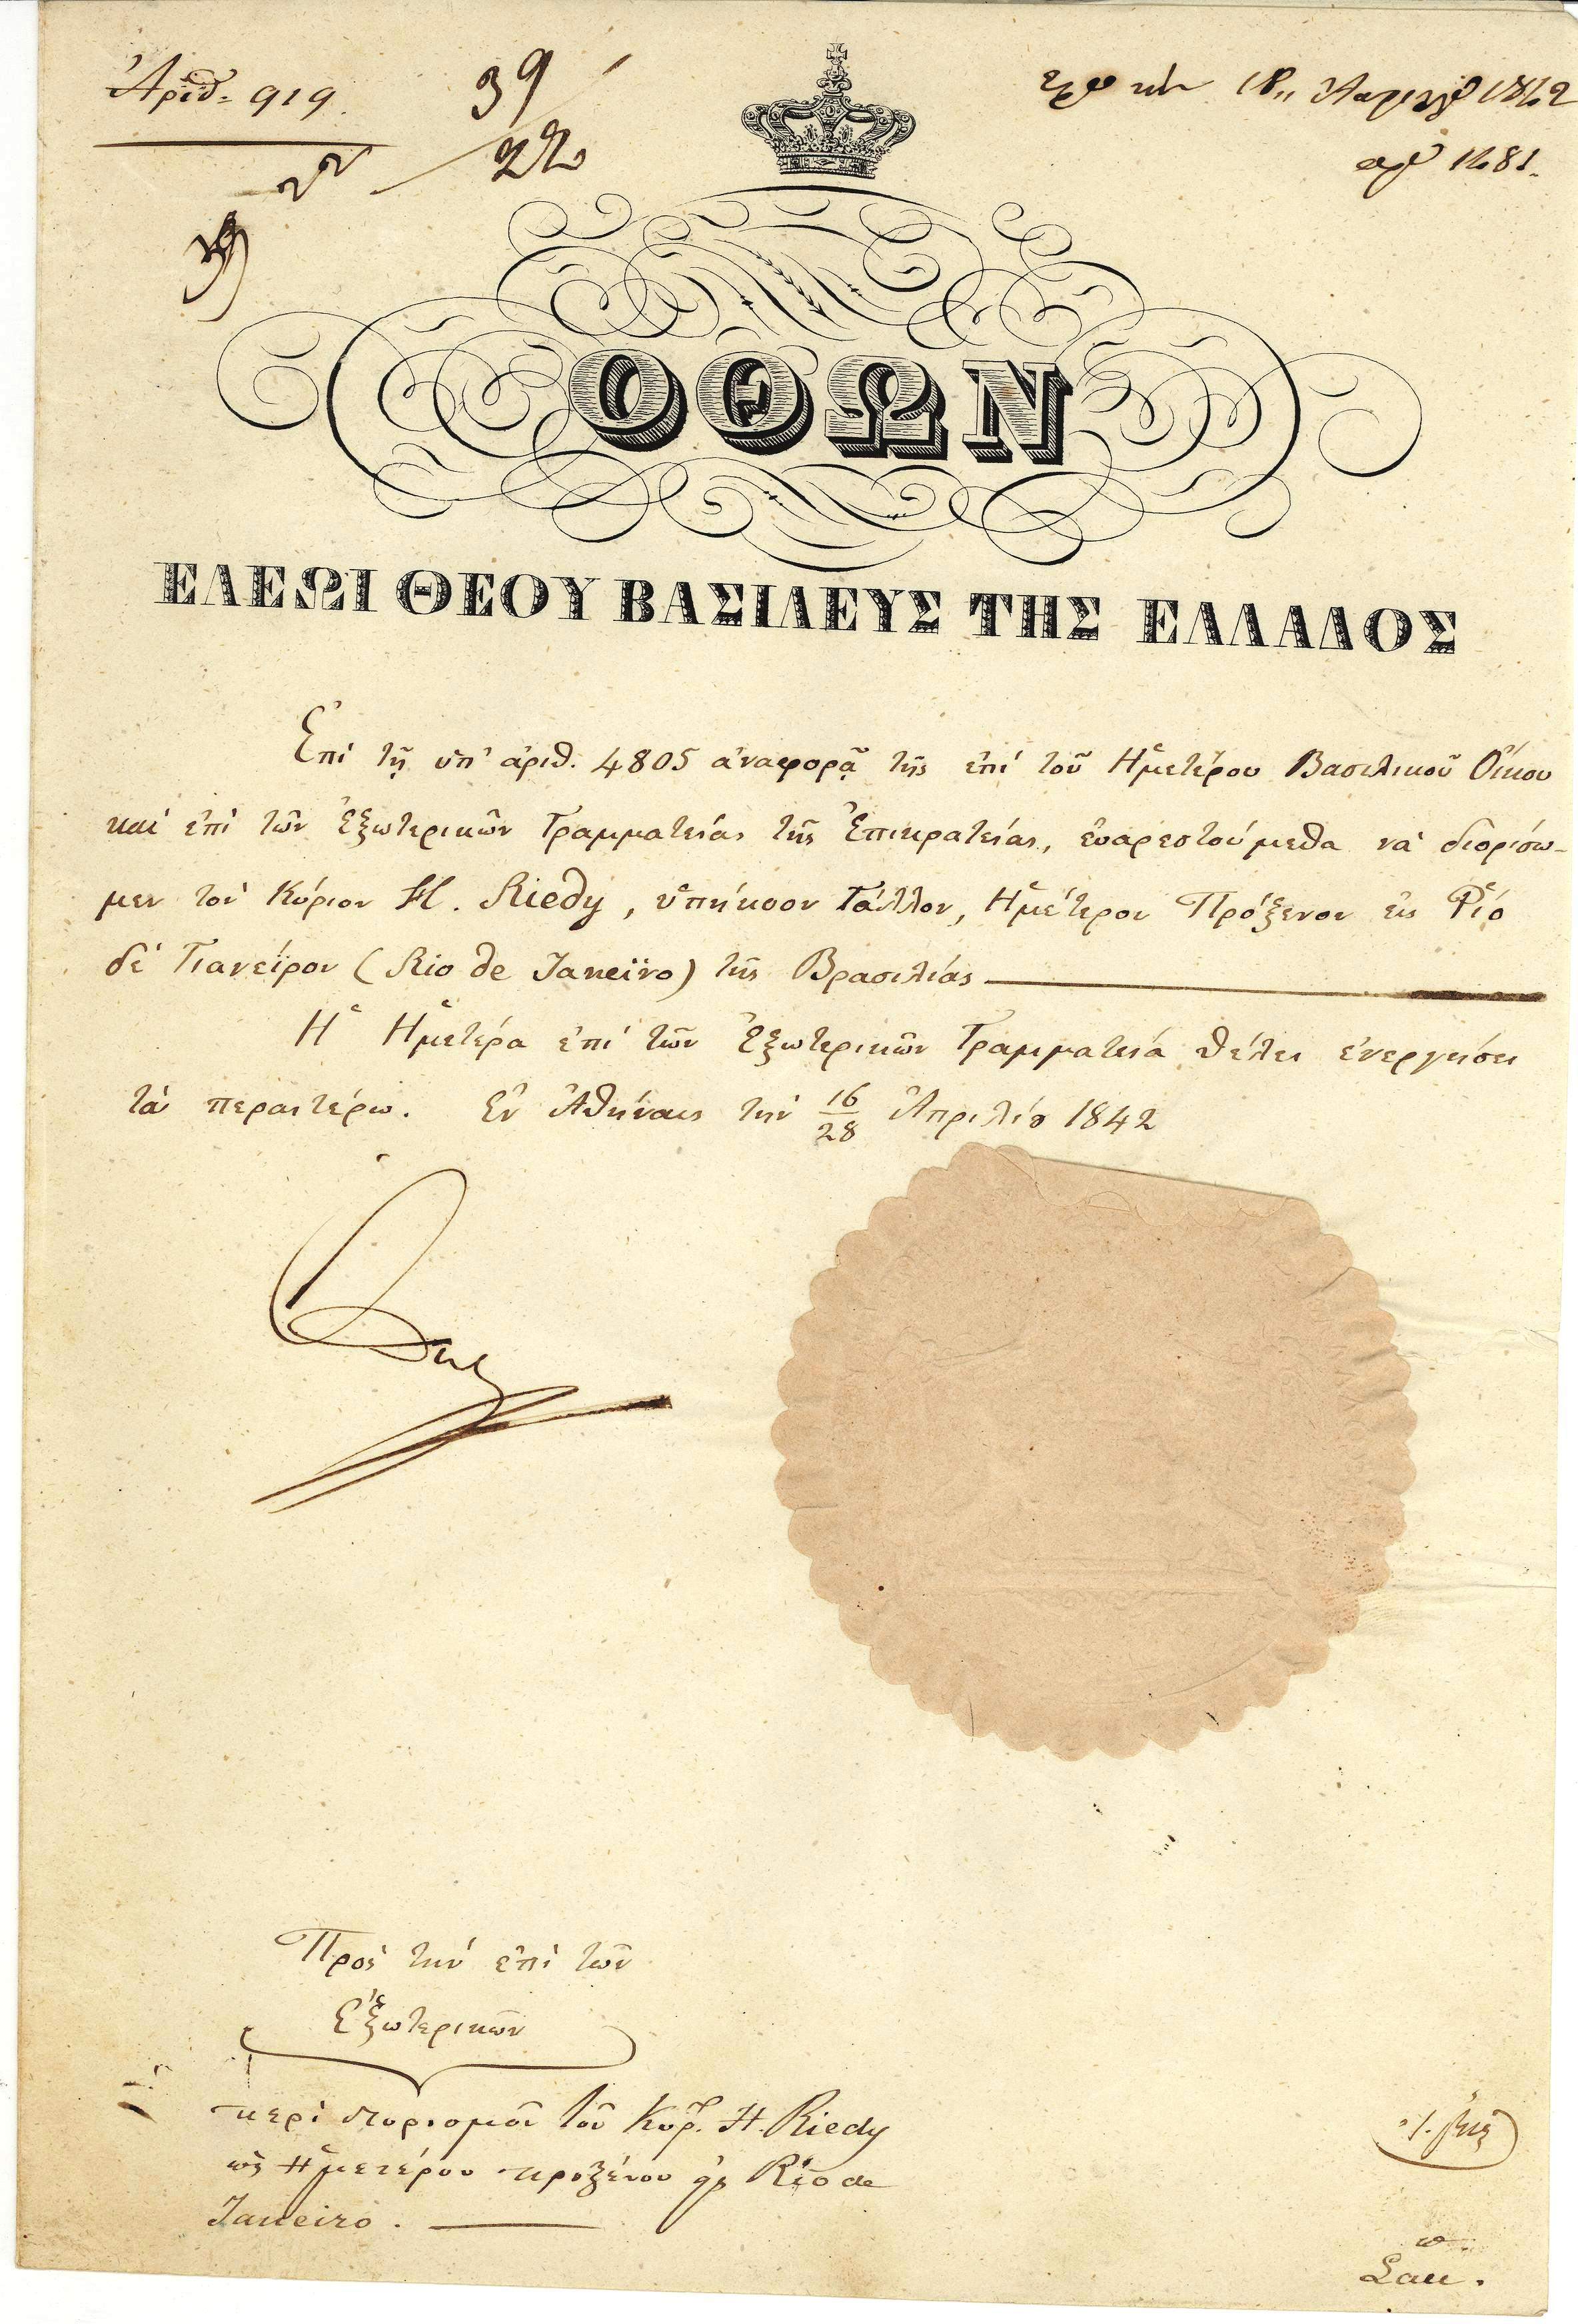 Ἀριθ. 919.
39
22
22
39
18 Ἀπριλίου 1842
1481.
ΟΘΩΝ
ΕΛΕΩΙ ΘΕΟΥ ΒΑΣΙΛΕΥΣ ΤΗΣ ΕΛΛΑΔΟΣ
Ἐπὶ τῇ ὑπ' ἀριθ. 4805 ἀναφορᾷ τῆς ἐπὶ τοῦ Ἡμετέρου Βασιλικοῦ Οἴκου
καὶ ἐπὶ τῶν Ἐξωτερικῶν Γραμματείας τῆς Ἐπικρατείας, εὐαρεστούμεθα νὰ διορίσω-
μεν τὸν Κύριον H. Riedy, ὑπήκοον Γάλλον, Ἡμέτερον Πρόξενον εἰς Ῥίο
δὲ Γιανεῖρον (Rio de Janeïro) τῆς Βρασιλίας
Ἡ Ἡμετέρα ἐπὶ τῶν Ἐξωτερικῶν Γραμματεία θέλει ἐνεργήσει
τὰ περαιτέρω. Ἐν Ἀθήναις τὴν 16/28 Ἀπριλίου 1842
Πρὸς τὴν ἐπὶ τῶν
Ἐξωτερικῶν
περὶ διορισμοῦ τοῦ Κυρ. H. Riedy
ὡς Ἡμετέρου προξένου εἰς Rio de
Janeiro.